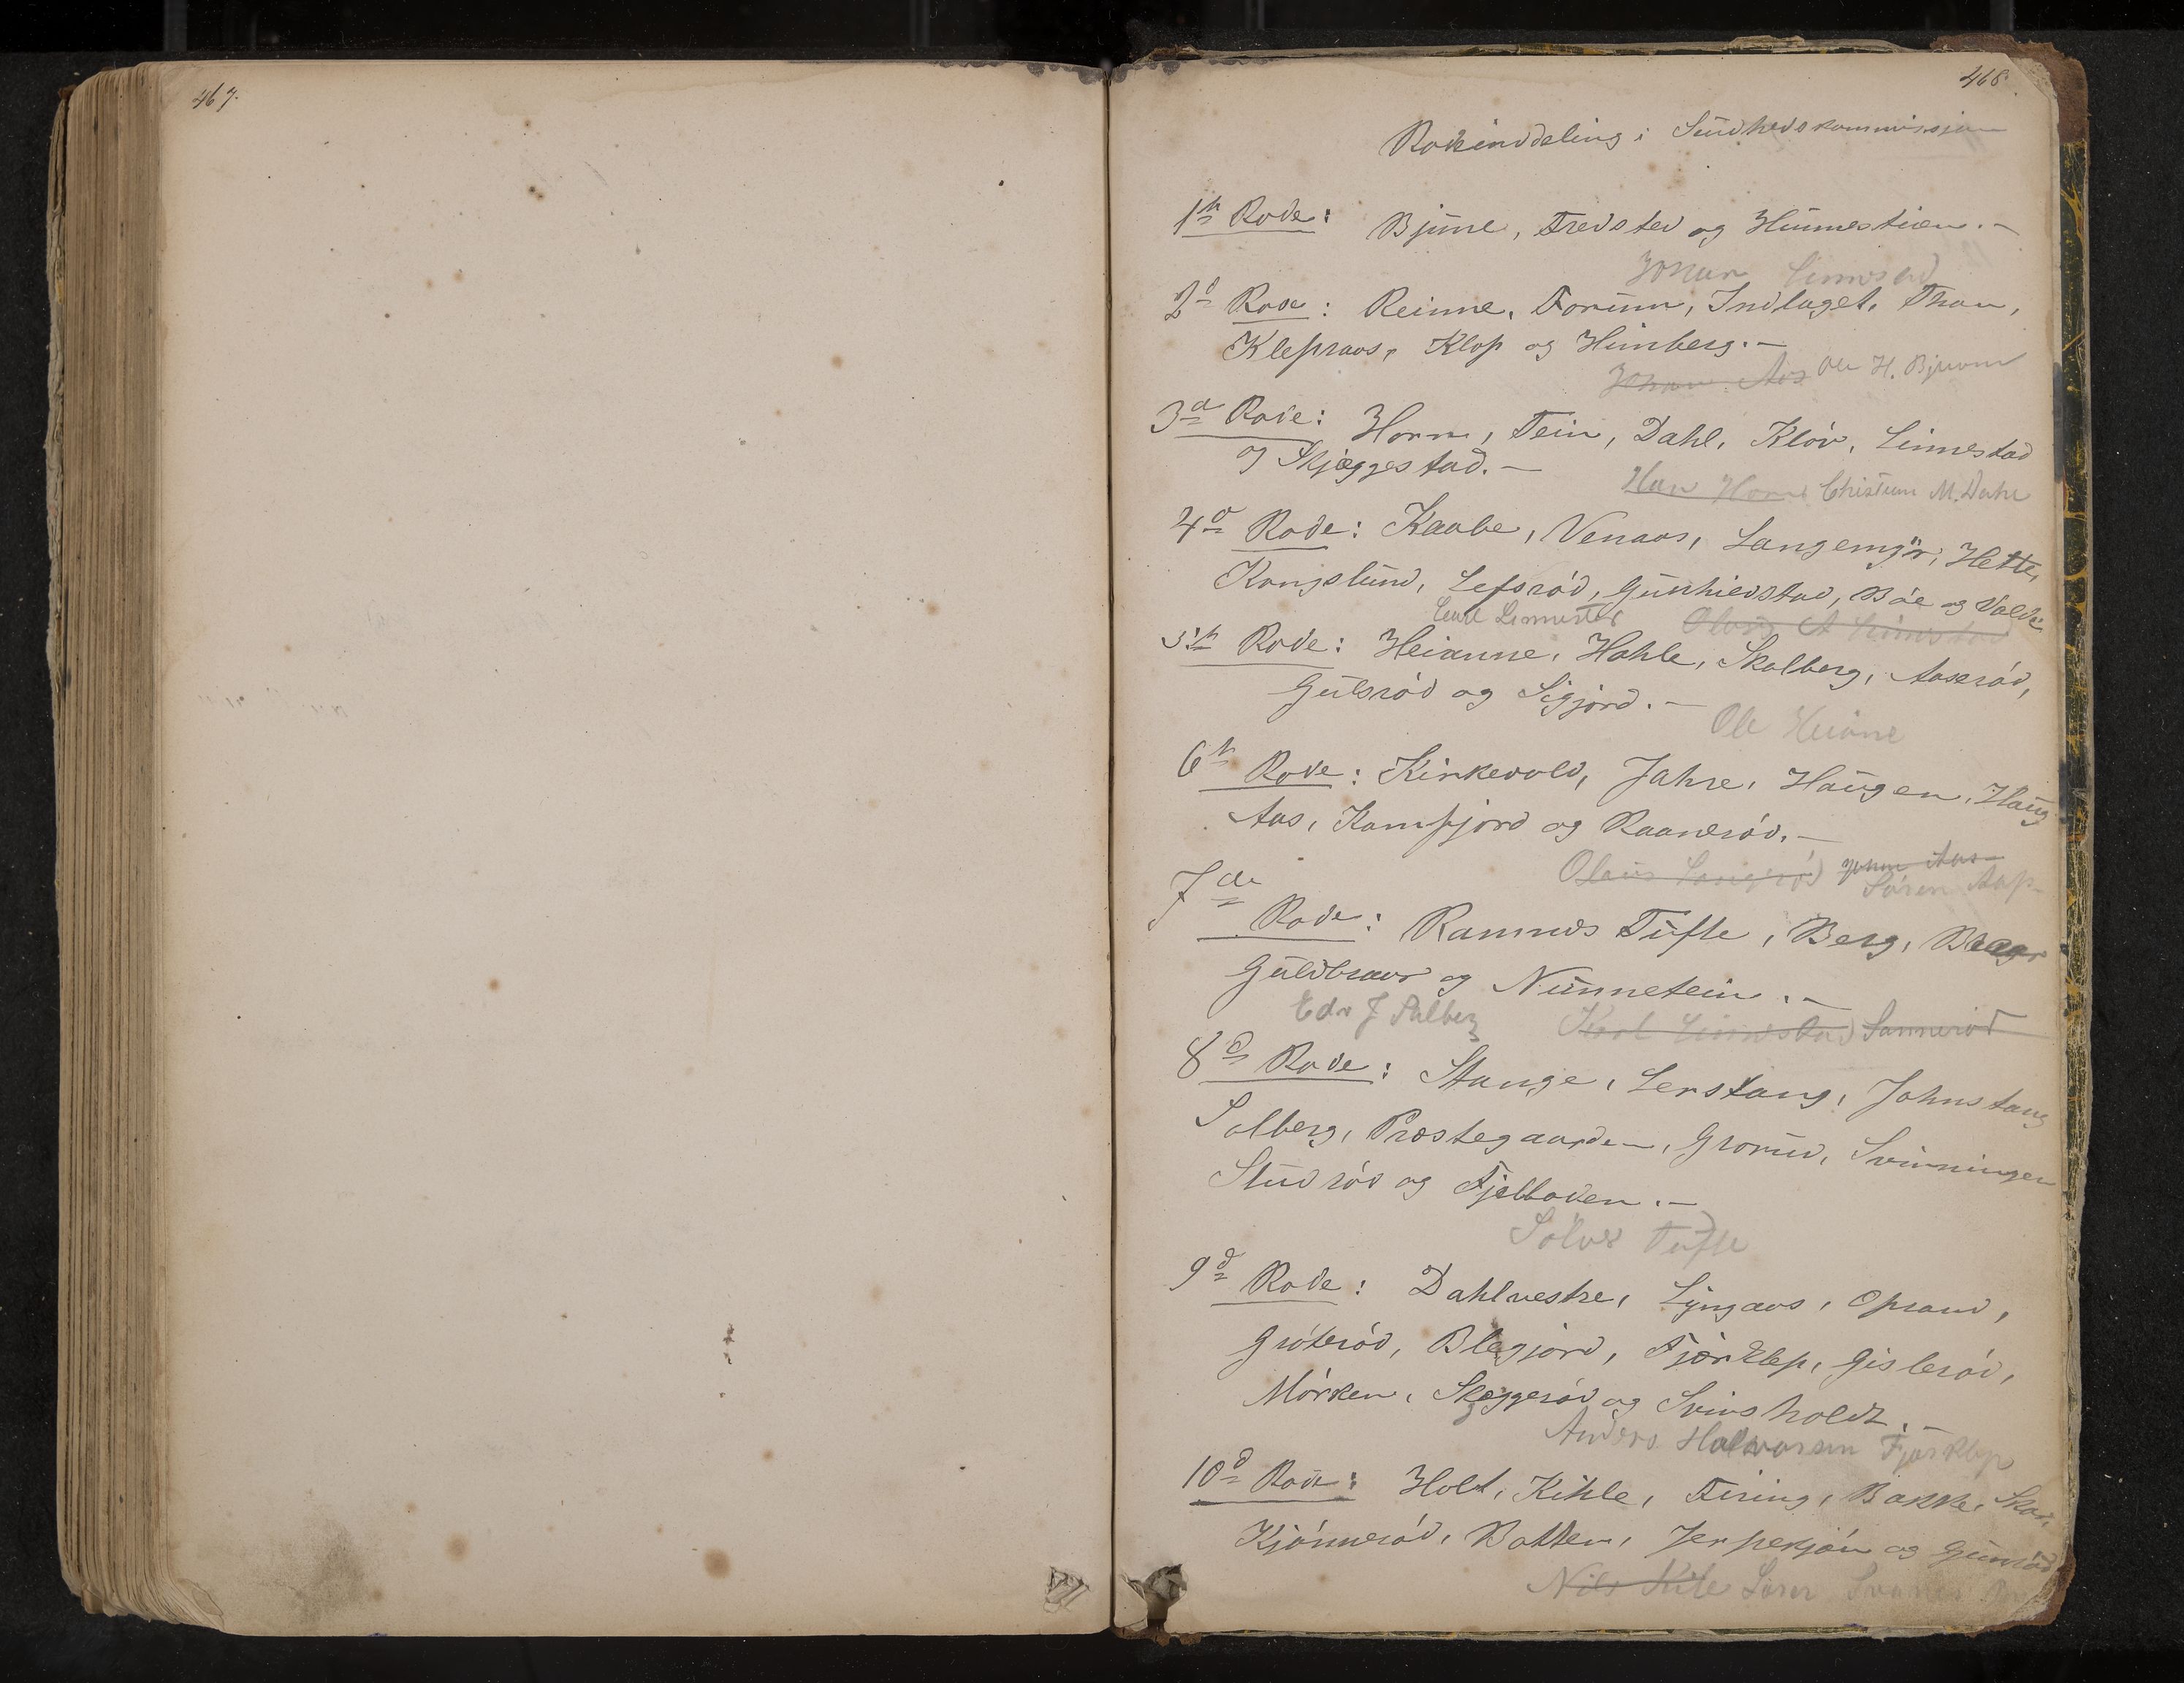 467.
468.
Rodeinddeling i Sundhedskommissjon
1ste Rode: Bjune, Fredsted og Hunnestien.-
Johan Linnestad
2den Rode: Reinne, Forum, Indlaget, Thon,
Klepraas, Klop og Himberg.-
Johan Aas Ole H. Bjuvne
3die Rode: Horn, Tein, Dahl, Klöv, Linnestad
og Skjæggestad.-
Han Horn Christian M. Dahl
4de Rode: Kaabe, Venaas, Langemyr, Hette,
Kongslund, Lefsröd, Gunhildstad, Böe og Valde
Carl Linnestad Oluf A Linnestad
5te Rode: Heianne, Hahle, Skalberg, Aaseröd,
Gulsröd og Sigjord.-
Ole Heiane
6te Rode: Kirkevold, Jahre, Haugen, Haug
Aas, Kamfjord og Raaneröd.-
Olaus Langeröd Johan Aas
Sören Aas
7de Rode: Ramnes Tufte, Berg, Brager
Guldbraar og Nunnetein.-
Edv J Solberg Karl Linnestad Sanneröd
8de Rode: Stange, Lerstang, Johnstang
Solberg, Prestegaarden, Grorud, Svinningen
Studröd og Fjelladen.-
Sölver Tufte
9de Rode: Dahlvestre, Lyngaas, Opsand,
Gröteröd, Blegjord, Fjærklep, Gisleröd,
Mörken, Skeggeröd og Svinsholdt.-
Anders Halvorsen Fjærklep
10de Rode: Holt, Kihle, Firing, Bakke, Skar,
Kjönneröd, Botten, Jerpekjön og Gjunröd
Nils Kile Sören